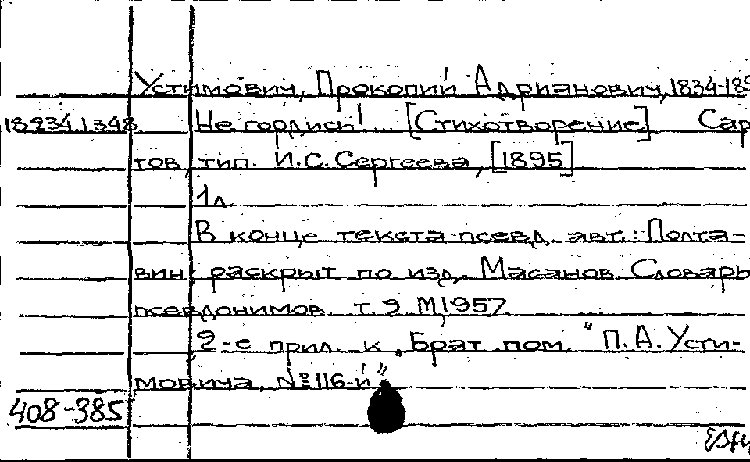 Устимович, Прокопий Адрианович, 1834-189
18.234.1.348 Не гордись!... [Стихотворение] Сар
тов, тип. И.С. Сергеева, [1895]
1 л.
В конце текста псевд. авт.: Полта-
вин; раскрыт по изд. Масанов. Словарь
псевдонимов. т. 2. М, 1957.
2-е прил. к „Брат. пом." П.А. Усти-
мовича, № 116-й"
408-385